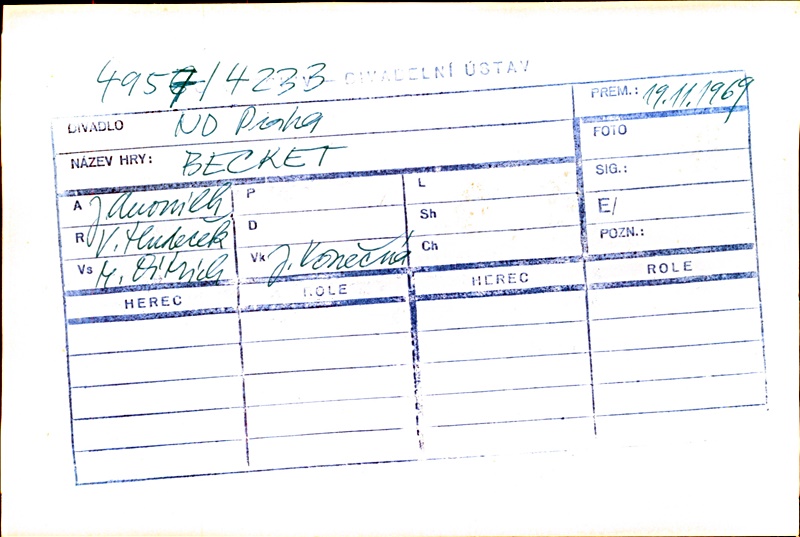 4957/4233 DIVADELNÍ ÚSTAV
DIVADLO ND Praha
PREM.: 19.11.1969
NÁZEV HRY: BECKET
FOTO
SIG.:
E/
POZN.:
A J. Anouilh
P
L
R V. Hudeček
D
Sh
Vs
Vk J. Konečná
Ch
HEREC ROLE HEREC ROLE